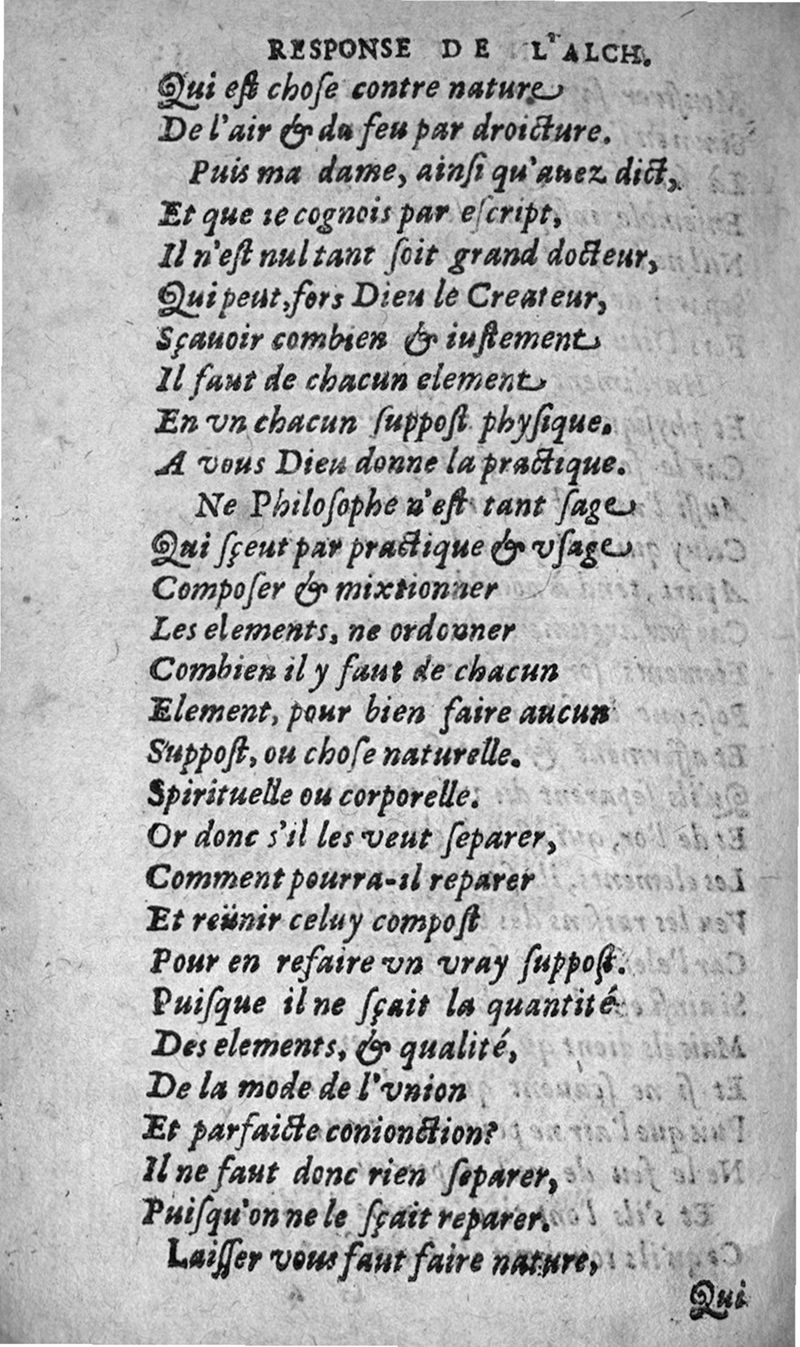 RESPONSE DE L'ALCH.
Qui eſt choſe contre nature
De l'air & du feu par droicture.
Puis ma dame, ainſi qu'auez dict,
Et que ie cognois par eſcript,
Il n'eſt nul tant ſoit grand docteur,
Qui peut, fors Dieu le Createur,
Sçauoir combien & iuſtement
Il faut de chacun element
En vn chacun ſuppoſt phyſique.
A vous Dieu donne la practique.
Ne Philoſophe n'eſt tant ſage
Qui ſçeut par practique & vſage
Compoſer & mixtionner
Les elements, ne ordonner
Combien il y faut de chacun
Element, pour bien faire aucun
Suppoſt, ou choſe naturelle.
Spirituelle ou corporelle.
Or donc s'il les veut ſeparer,
Comment pourra-il reparer
Et reünir celuy compoſt
Pour en refaire vn vray ſuppoſt.
Puiſque il ne ſçait la quantité
Des elements, & qualité,
De la mode de l'vnion
Et parfaicte conionction?
Il ne faut donc rien ſeparer,
Puiſqu'on ne le ſçait reparer.
Laiſſer vous faut faire nature,
Qui